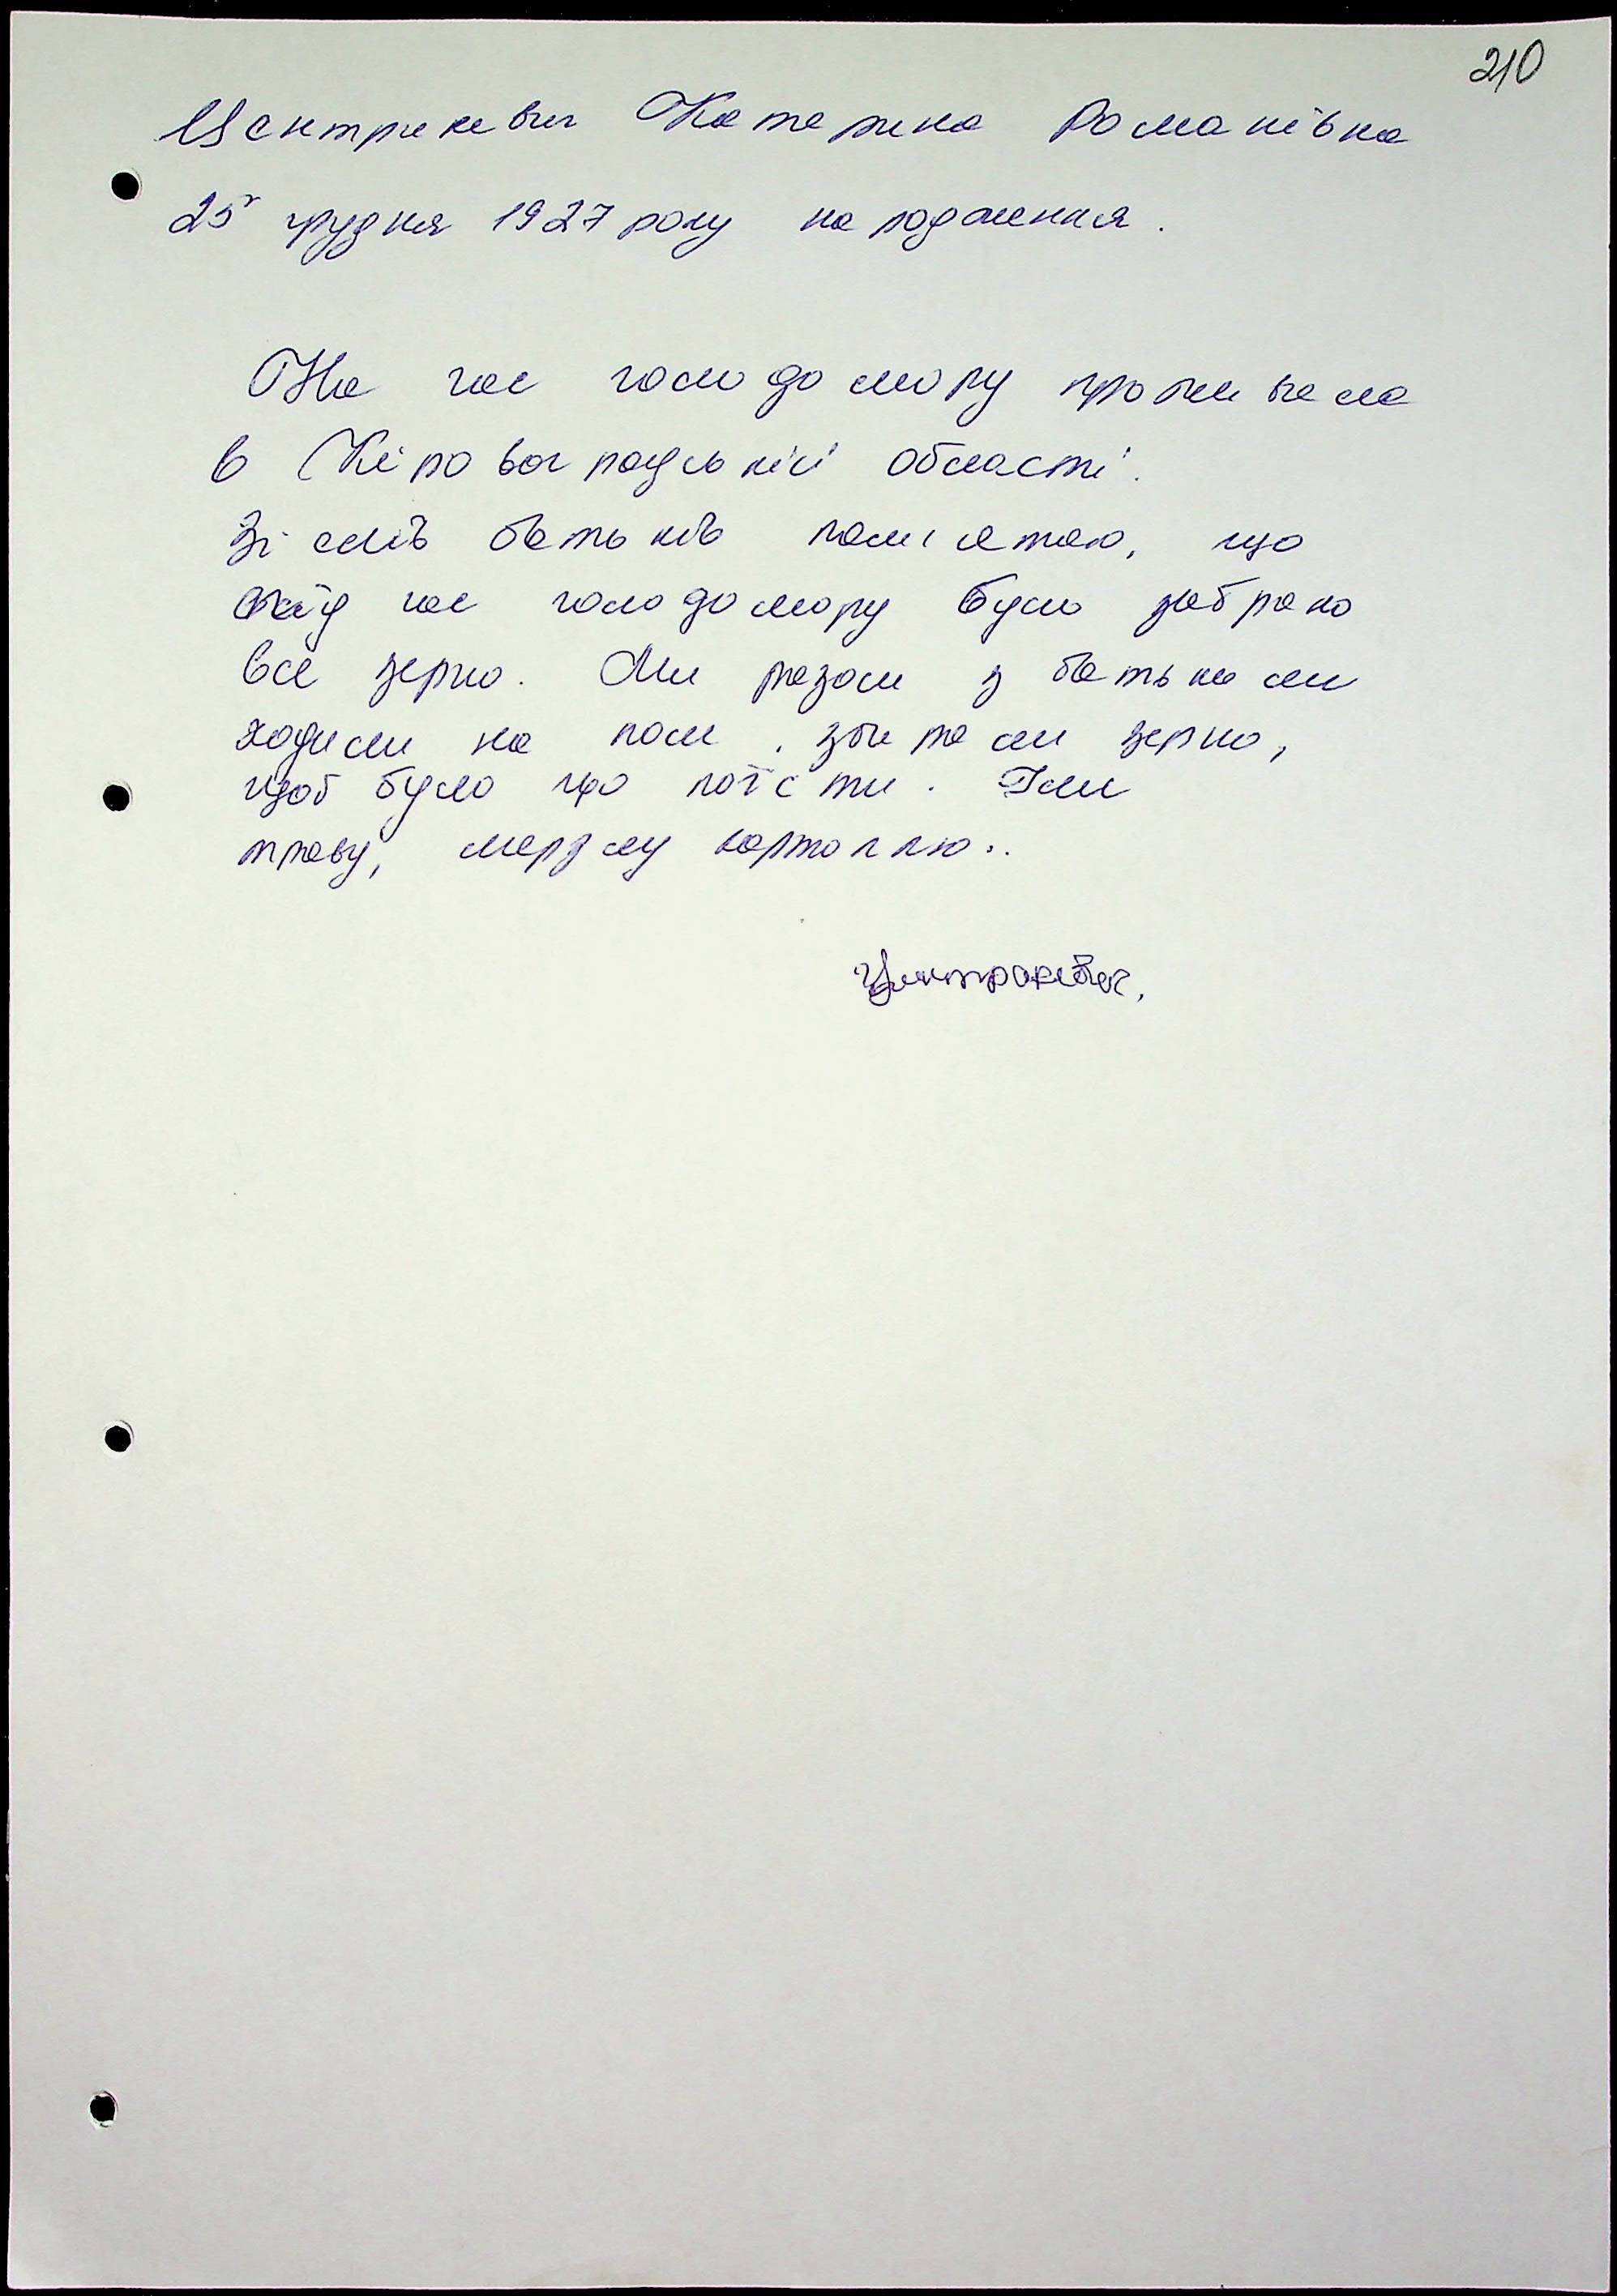 210
Центрикевич Катерина Романівна
25 грудня 1927 року народження.
На час голодомору проживала
в Кіровоградській області.
Зі слів батьків пам'ятаю, що
під час голодомору було забрано
все зерно. Ми разом з батьками
ходили на поле, збирали зерно,
щоб було що поїсти. Їли
траву, мерзлу картоплю..